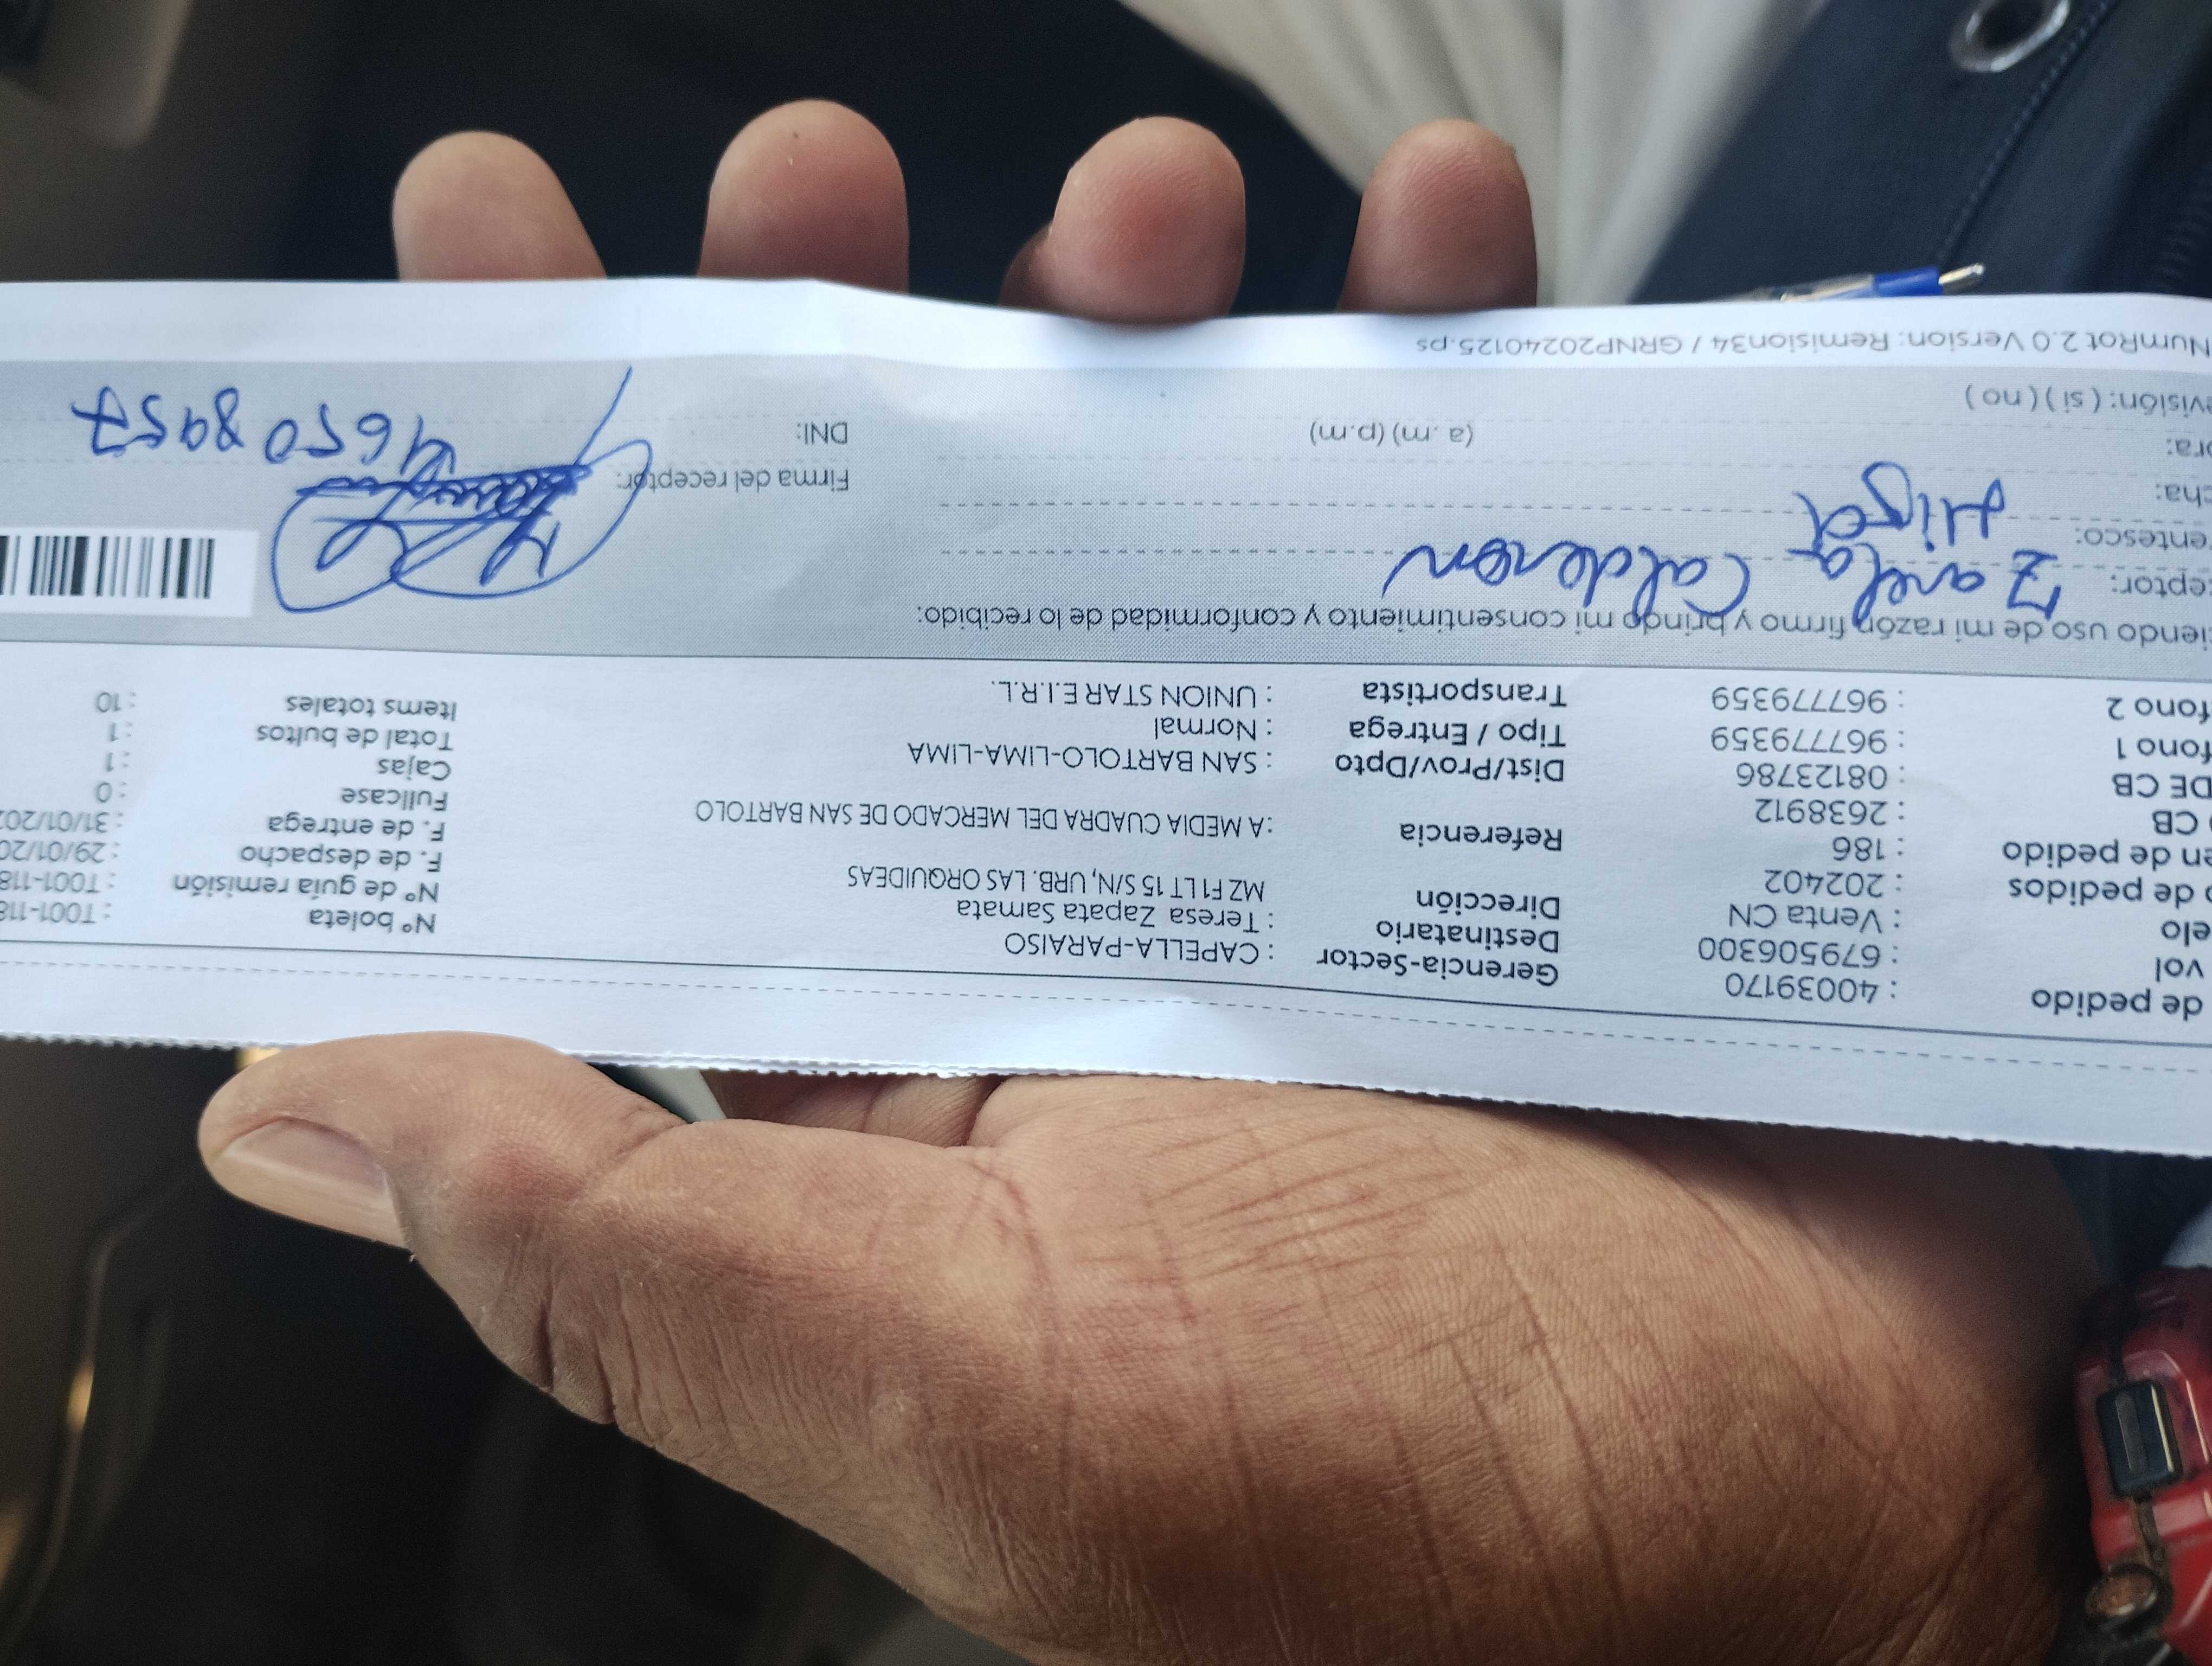 de pedido : 40039170 Gerencia-Sector : CAPELLA-PARAISO Nº boleta : T001-118
vol : 679506300 Destinatario : Teresa Zapata Samata Nº de guía remisión : T001-118
elo : Venta CN Dirección MZ F1 LT 15 S/N, URB. LAS ORQUIDEAS F. de despacho : 29/01/20
de pedidos : 202402 F. de entrega : 31/01/202
en de pedido : 186 Referencia : A MEDIA CUADRA DEL MERCADO DE SAN BARTOLO Fullcase : 0
CB : 2638912 Cajas : 1
DE CB : 08123786 Dist/Prov/Dpto : SAN BARTOLO-LIMA-LIMA Total de bultos : 1
fono 1 : 967779359 Tipo / Entrega : Normal Items totales : 10
fono 2 : 967779359 Transportista : UNION STAR E.I.R.L.
iendo uso de mi razón firmo y brindo mi consentimiento y conformidad de lo recibido:
ceptor: Zarela Calderon
entesco: Hija
cha: Firma del receptor:
ora: (a .m) (p.m) DNI: 46508957
visión: ( si ) ( no )
NumRot 2.0 Version: Remision34 / GRNP20240125.ps